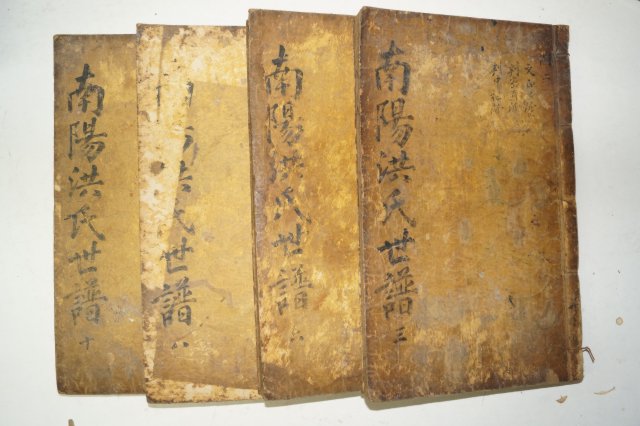 南陽洪氏世譜 三
南陽洪氏世譜 六
陽洪氏世譜 八
南陽洪氏世譜 十